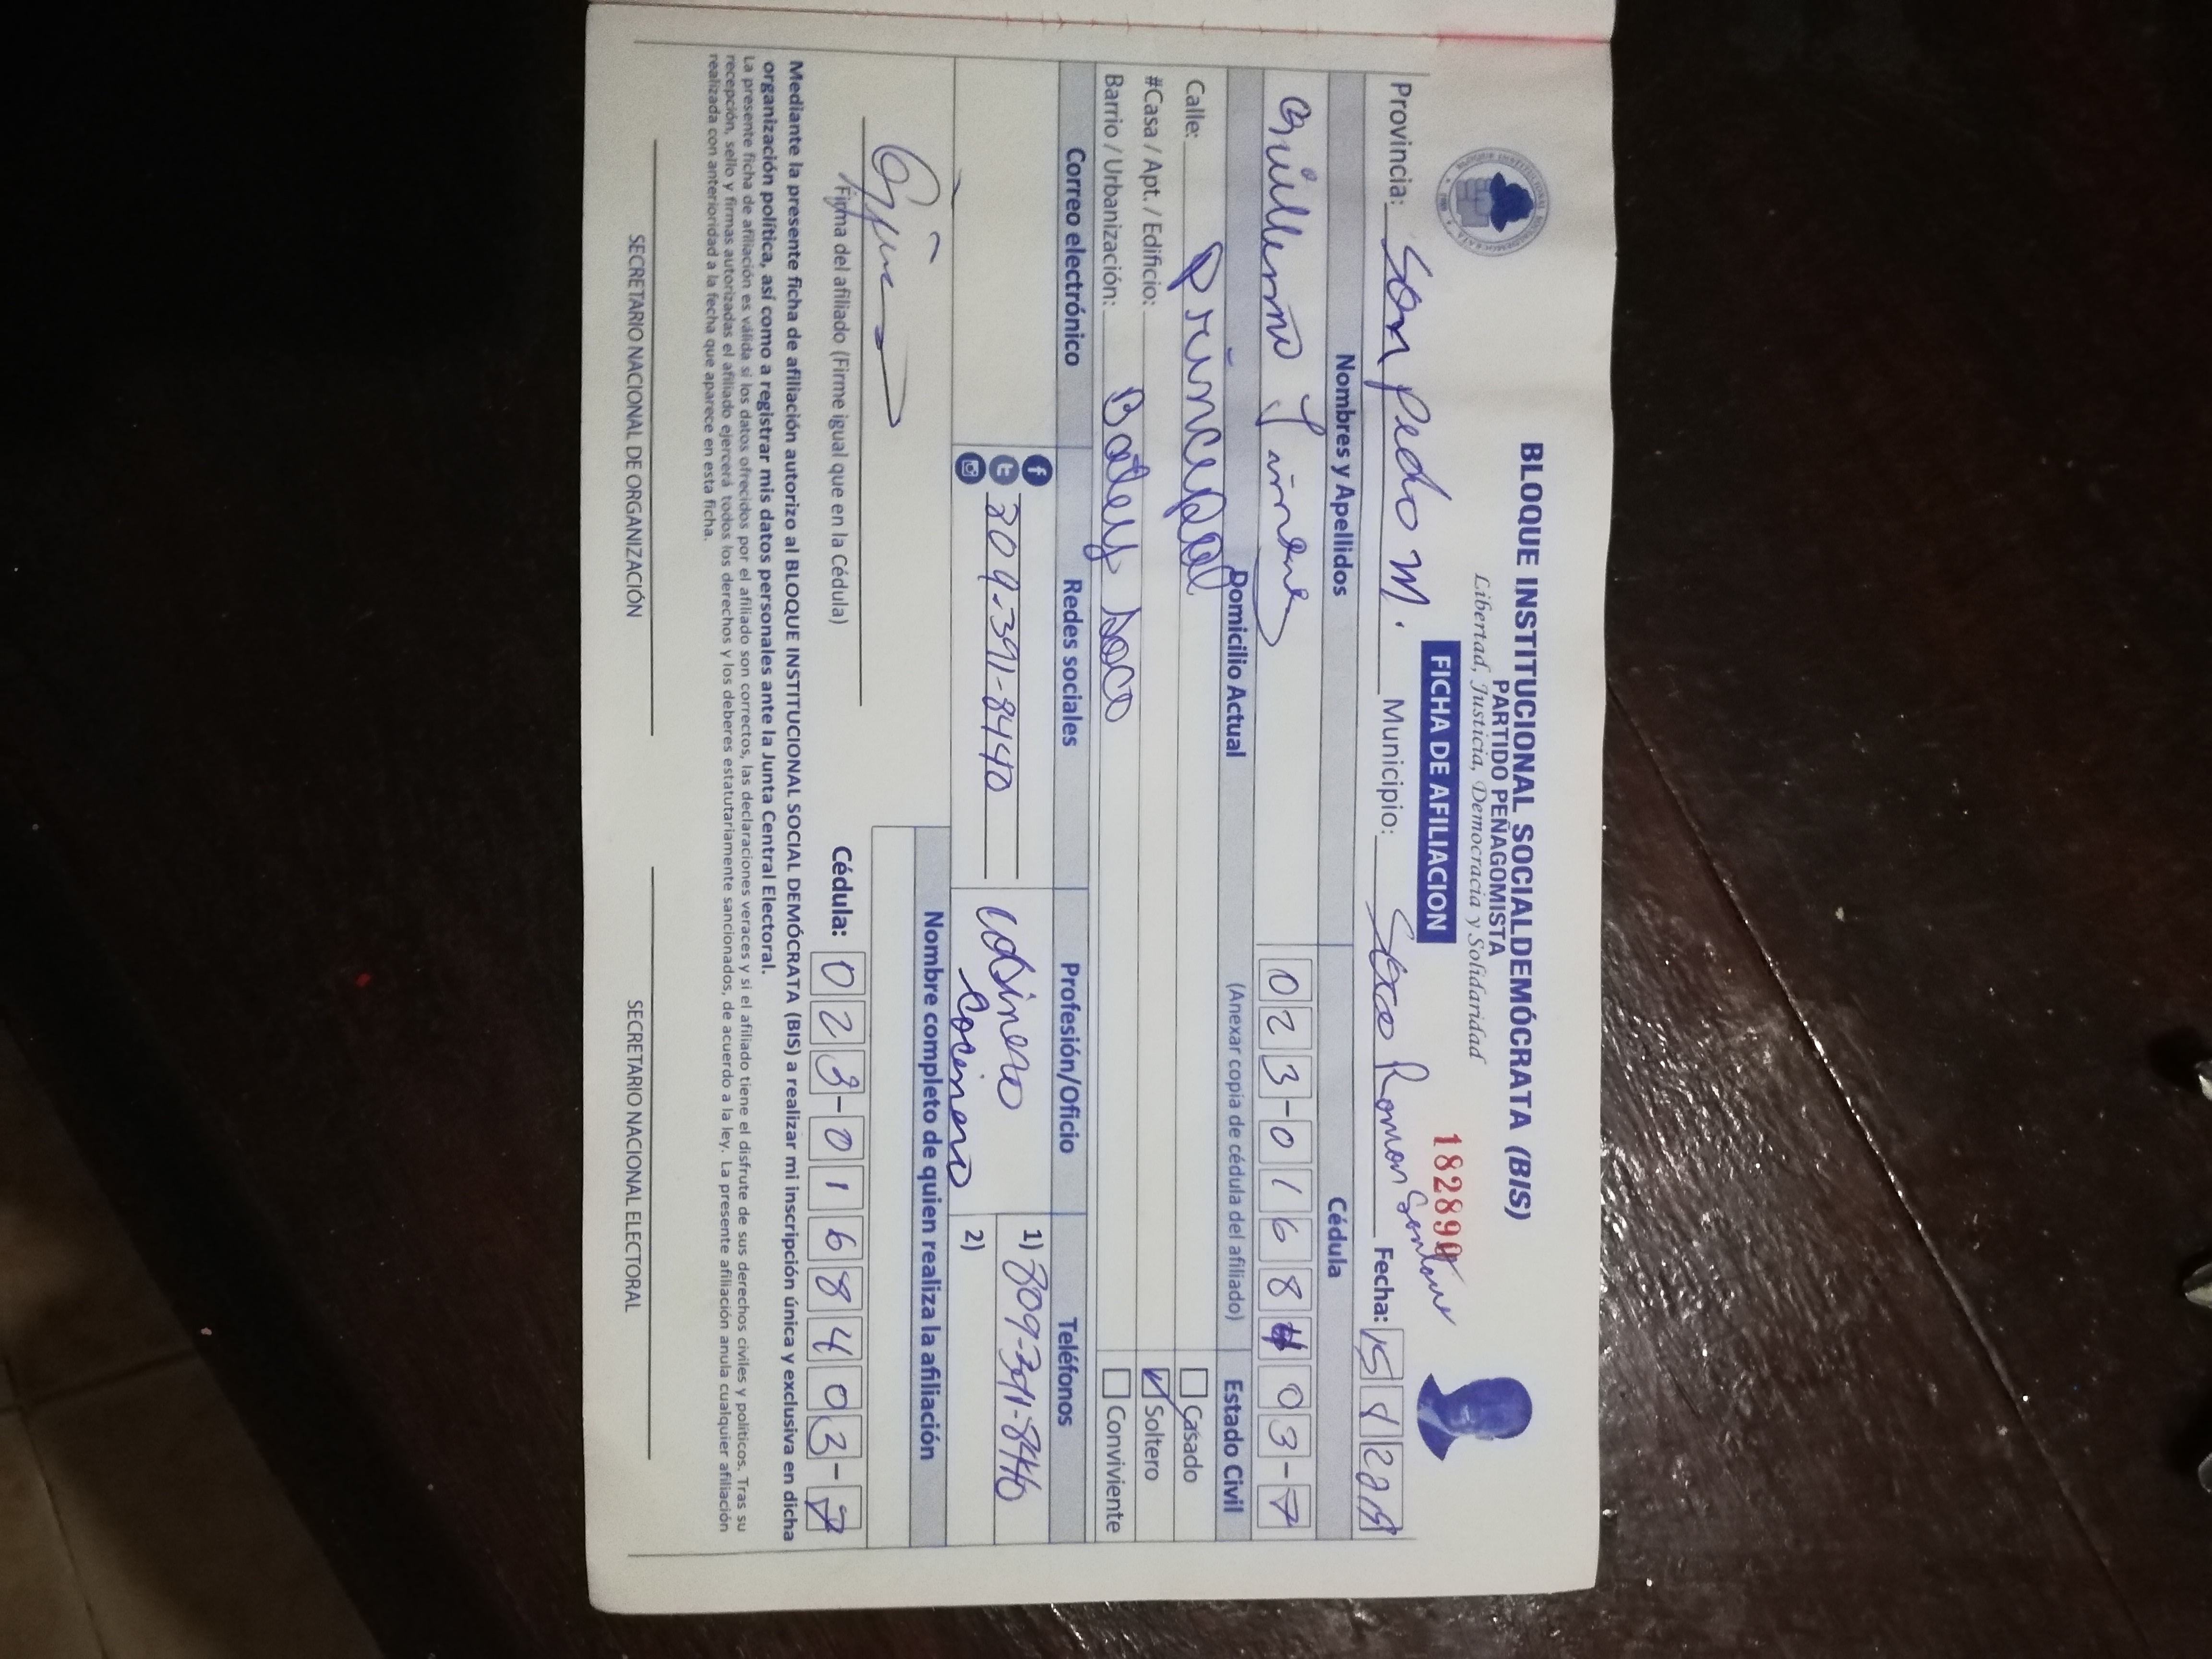 BLOQUE INSTITUCIONAL SOCIALDEMÓCRATA (BIS)
PARTIDO PEÑAGOMISTA
Libertad, Justicia, Democracia y Solidaridad
FICHA DE AFILIACION
Provincia: San Pedo M. Municipio: Soco Roman Fecha: 15
Nombres y Apellidos Cédula
Guillermo 023-0168403-7
Domicilio Actual (Anexar copia de cédula del afiliado) Estado Civil
Calle: Principal Casado
#Casa / Apt. / Edificio: Soltero
Barrio / Urbanización: Batey Soco Conviviente
Correo electrónico Redes sociales Profesión/Oficio Teléfonos
309-391-8440 Cosinero 1) 809-391-8440
Cocinero 2)
Nombre completo de quien realiza la afiliación
Firma del afiliado (Firme igual que en la Cédula) Cédula: 023-0168403-7
Mediante la presente ficha de afiliación autorizo al BLOQUE INSTITUCIONAL SOCIAL DEMÓCRATA (BIS) a realizar mi inscripción única y exclusiva en dicha
organización política, así como a registrar mis datos personales ante la Junta Central Electoral.
La presente ficha de afiliación es válida si los datos ofrecidos por el afiliado son correctos, las declaraciones veraces y si el afiliado tiene el disfrute de sus derechos civiles y políticos. Tras su
recepción, sello y firmas autorizadas el afiliado ejercerá todos los derechos y los deberes estatutariamente sancionados, de acuerdo a la ley. La presente afiliación anula cualquier afiliación
realizada con anterioridad a la fecha que aparece en esta ficha.
SECRETARIO NACIONAL DE ORGANIZACIÓN SECRETARIO NACIONAL ELECTORAL